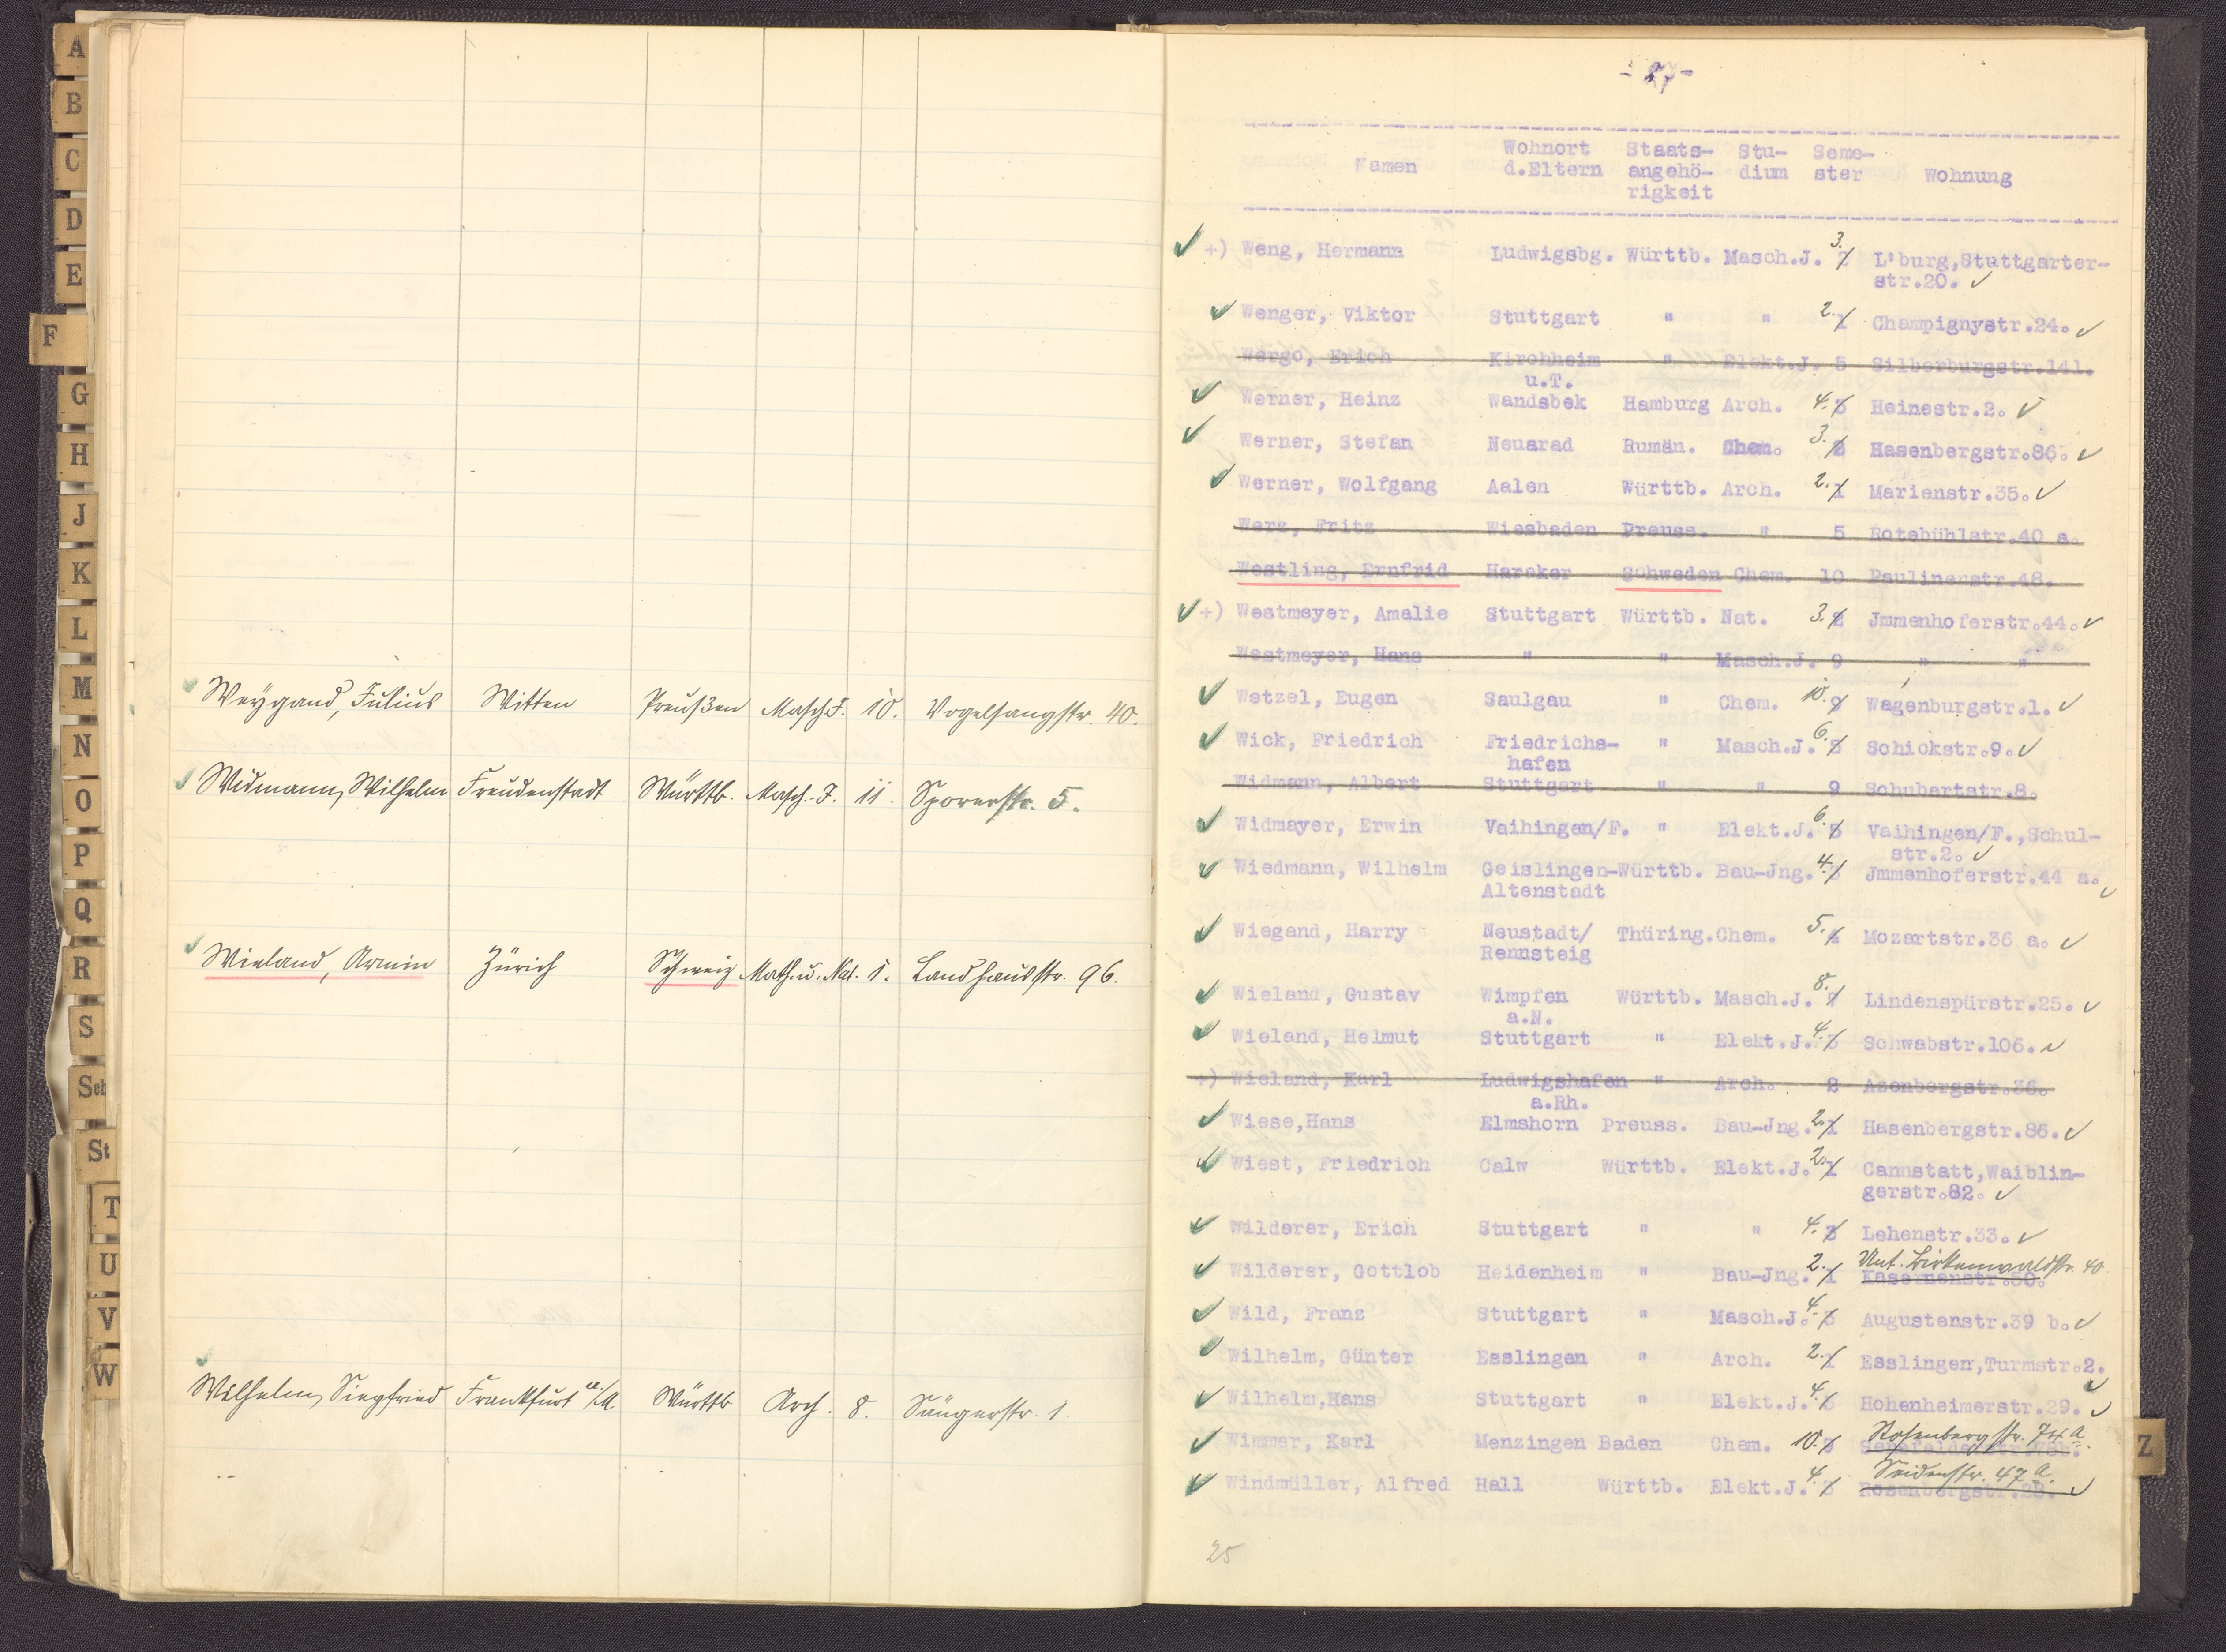 A
B
C
D
E
F
G
H
J
K
L
M
N
O
P
Q
R
S
Sch
St
T
U
V
W
Z
Weygand, Julius Witten Preußen Masch.J. 10. Vogelsangstr. 40.
Widmann, Wilhelm Freudenstadt Württb. Masch.-J. 11. Sporerstr. 5.
Wieland, Armin Zürich Schweiz Math.u.Nat. 1. Landhausstr. 96.
Wilhelm, Siegfried Frankfurt a./M. Württb Arch. 8. Sängerstr. 1.
Wohnort Staats- Stu- Seme-
Namen d.Eltern angehö- dium ster Wohnung
rigkeit
+) Weng, Hermann Ludwigsbg. Württb. Masch.J. 3. 2 L'burg,Stuttgarter-
str.20.
Wenger, Viktor Stuttgart " " 2. 1 Champignystr.24.
Wergo, Erich Kirchheim " Elekt.J. 5 Silberburgstr.141.
u.T.
Werner, Heinz Wandsbek Hamburg Arch. 4. 3 Heinestr.2.
Werner, Stefan Neuarad Rumän. Chem. 3. 2 Hasenbergstr.86.
Werner, Wolfgang Aalen Württb. Arch. 2. 1 Marienstr.35.
Werz, Fritz Wiesbaden Preuss. " 5 Rotebühlstr.40 a.
Westling, Ernfrid Haraker Schweden Chem. 10 Paulinenstr.48.
+) Westmeyer, Amalie Stuttgart Württb. Nat. 3. 2 Jmmenhoferstr.44.
Westmeyer, Hans " " Masch.J. 9 " "
Wetzel, Eugen Saulgau " Chem. 10. 9 Wagenburgstr.1.
Wick, Friedrich Friedrichs- " Masch.J. 6. 5 Schickstr.9.
hafen
Widmann, Albert Stuttgart " " 9 Schubartstr.8.
Widmayer, Erwin Vaihingen/F. " Elekt.J. 6. 5 Vaihingen/F.,Schul-
str.2.
Wiedmann, Wilhelm Geislingen-Württb. Bau-Jng. 4. 3 Jmmenhoferstr.44 a.
Altenstadt
Wiegand, Harry Neustadt/ Thüring.Chem. 5. 4 Mozartstr.36 a.
Rennsteig
Wieland, Gustav Wimpfen Württb. Masch.J. 8. 7 Lindenspürstr.25.
a.N.
Wieland, Helmut Stuttgart " Elekt.J. 4. 3 Schwabstr.106.
+) Wieland, Karl Ludwigshafen " Arch. 2 Azenbergstr.36.
a.Rh.
Wiese,Hans Elmshorn Preuss. Bau-Jng. 2. 1 Hasenbergstr.86.
Wiest, Friedrich Calw Württb. Elekt.J. 2. 1 Cannstatt,Waiblin-
gerstr.82.
Wilderer, Erich Stuttgart " " 4. 3 Lehenstr.33.
Unt. Birkenwaldstr. 40
Wilderer, Gottlob Heidenheim " Bau-Jng. 2. 1 Kasernenstr.50.
Wild, Franz Stuttgart " Masch.J. 4. 3 Augustenstr.39 b.
Wilhelm, Günter Esslingen " Arch. 2. 1 Esslingen,Turmstr.2.
Wilhelm,Hans Stuttgart " Elekt.J. 4. 3 Hohenheimerstr.29.
Rosenbergstr. 74 a.
Wimmer, Karl Menzingen Baden Chem. 10.
Seidenstr. 47 a.
Windmüller, Alfred Hall Württb. Elekt.J. 4. 3 Rosenbergstr.28.
25